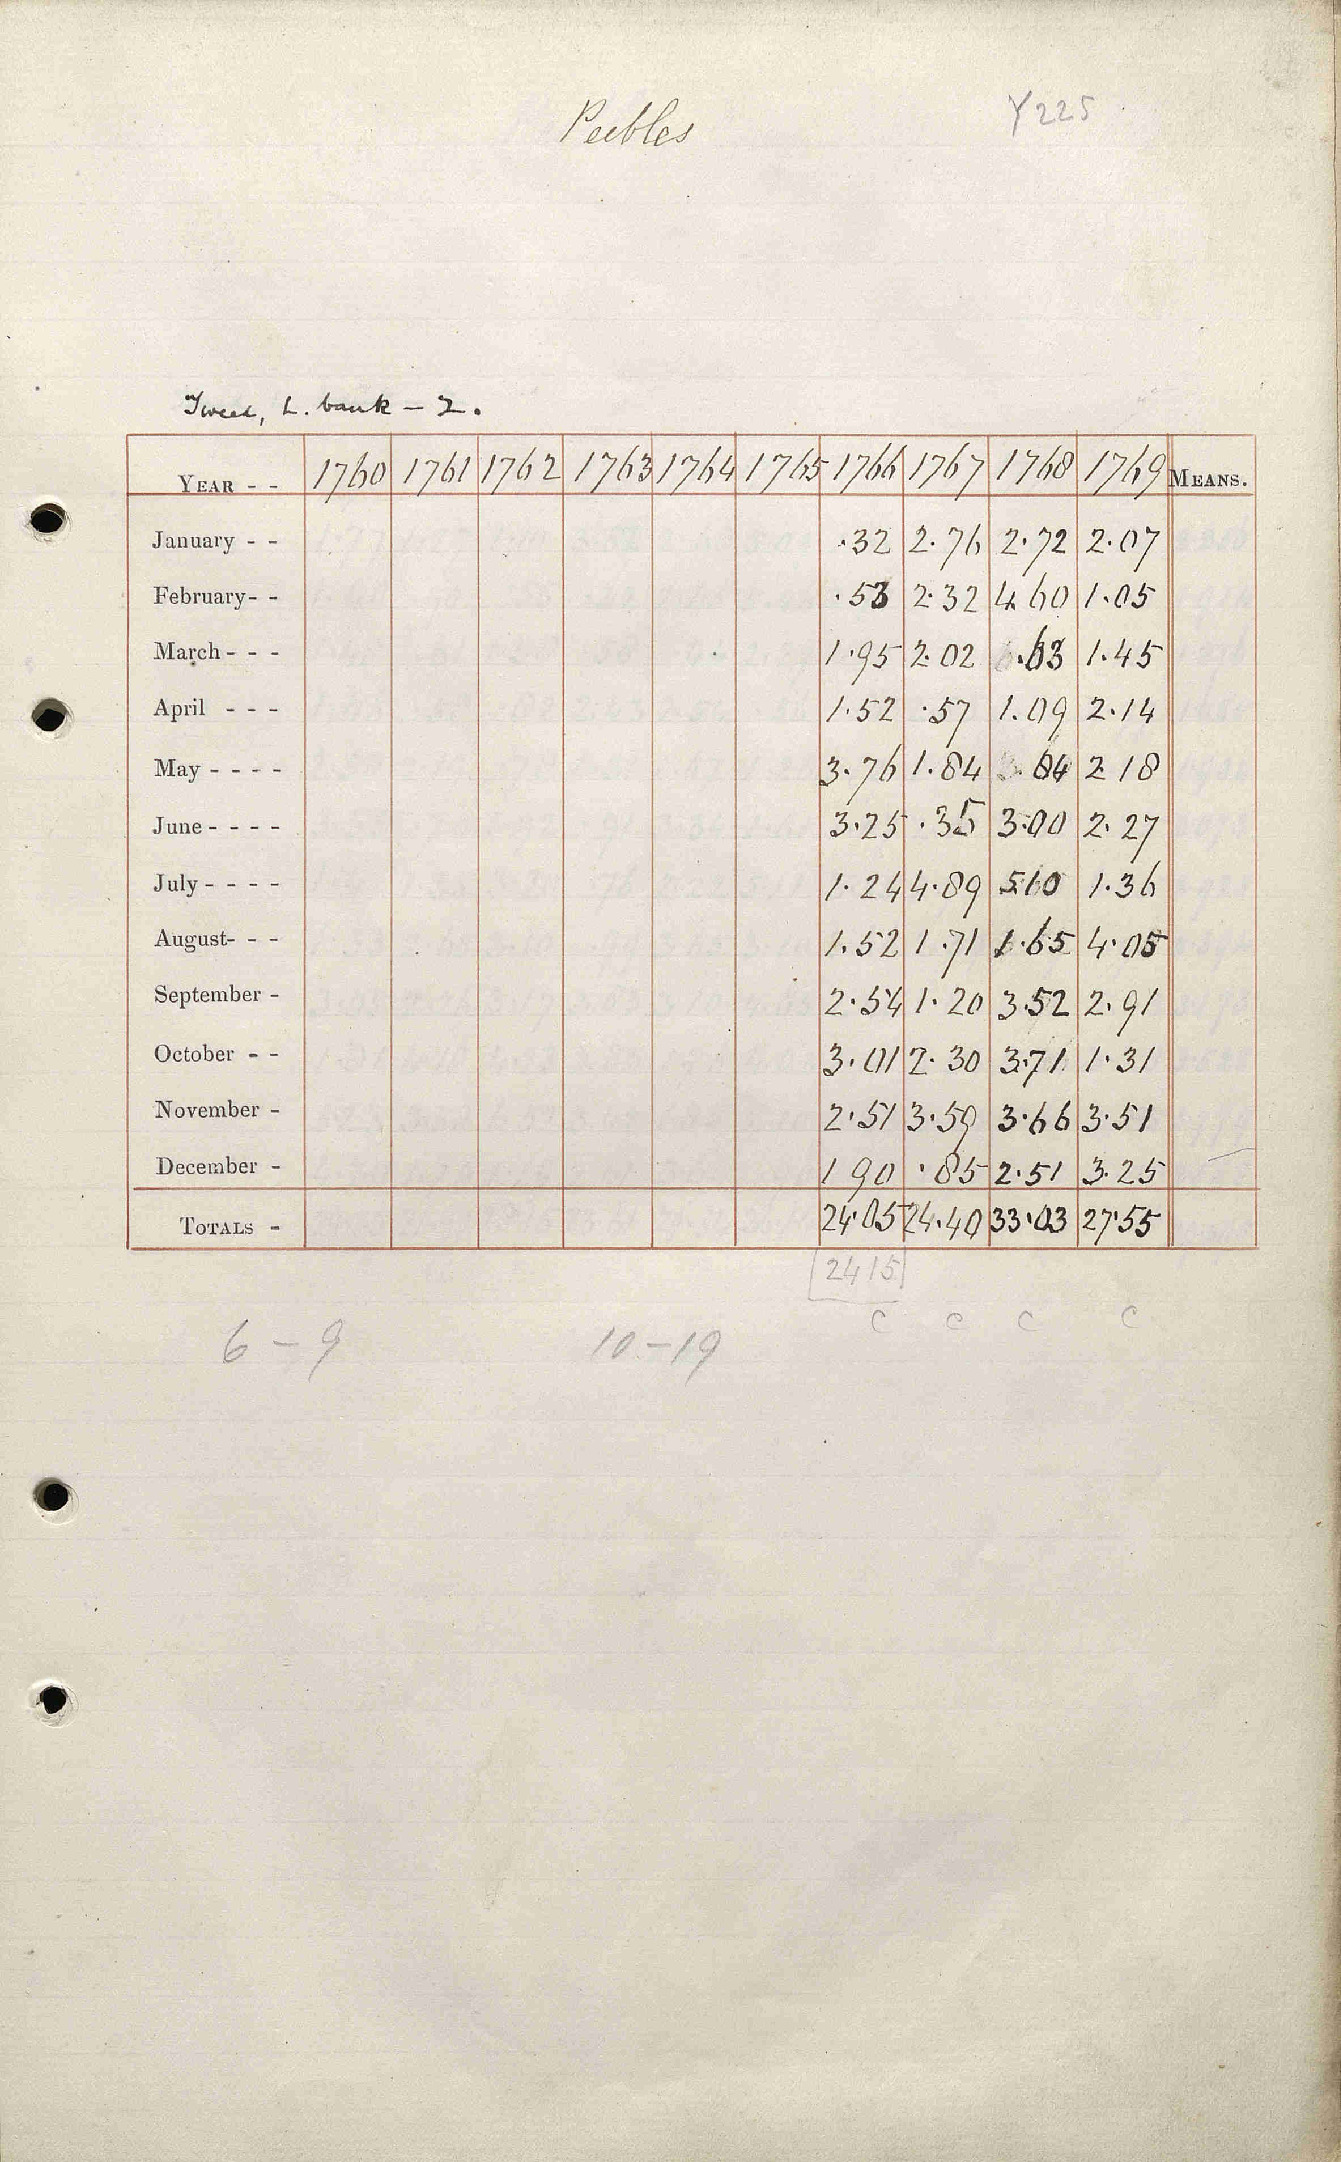 Peebles
Y225
Tweed, L. bank - 2.
YEAR - - 1760 1761 1762 1763 1764 1765 1766 1767 1768 1769 MEANS.
January - - .32 2.76 2.72 2.07
February- - .53 2.32 4.60 1.05
March - - - 1.95 2.02 .63 1.45
April - - - 1.52 .57 1.09 2.14
May - - - - 3.76 1.84 .84 2 18
June - - - - 3.25 .35 3.00 2.27
July - - - - 1.24 4.89 5.10 1.36
August- - - 1.52 1.71 1.65 4.05
September - 2.54 1.20 3.52 2.91
October - - 3.01 2.30 3.71 1.31
November - 2.51 3.59 3.66 3.51
December - 1 90 .85 2.51 3.25
TOTALS - 24.05 24.40 33.03 27.55
2415
c c c c
6 - 9 10 - 19